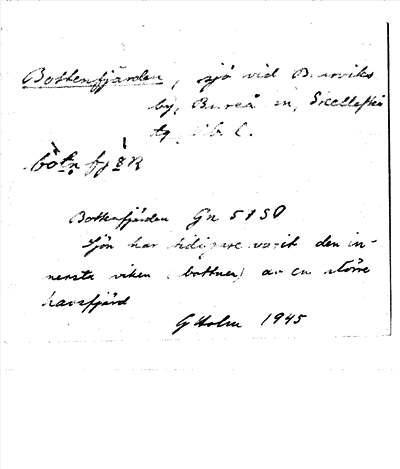 Bottenfjärden, sjö vid Burviks
by, Bureå sn, Skellefteå
tg
Bottenfjärden Gn 5150
Sjön har tidigare varit den in-
nersta viken (bottnen) av en större
havsfjärd
G Holm 1945